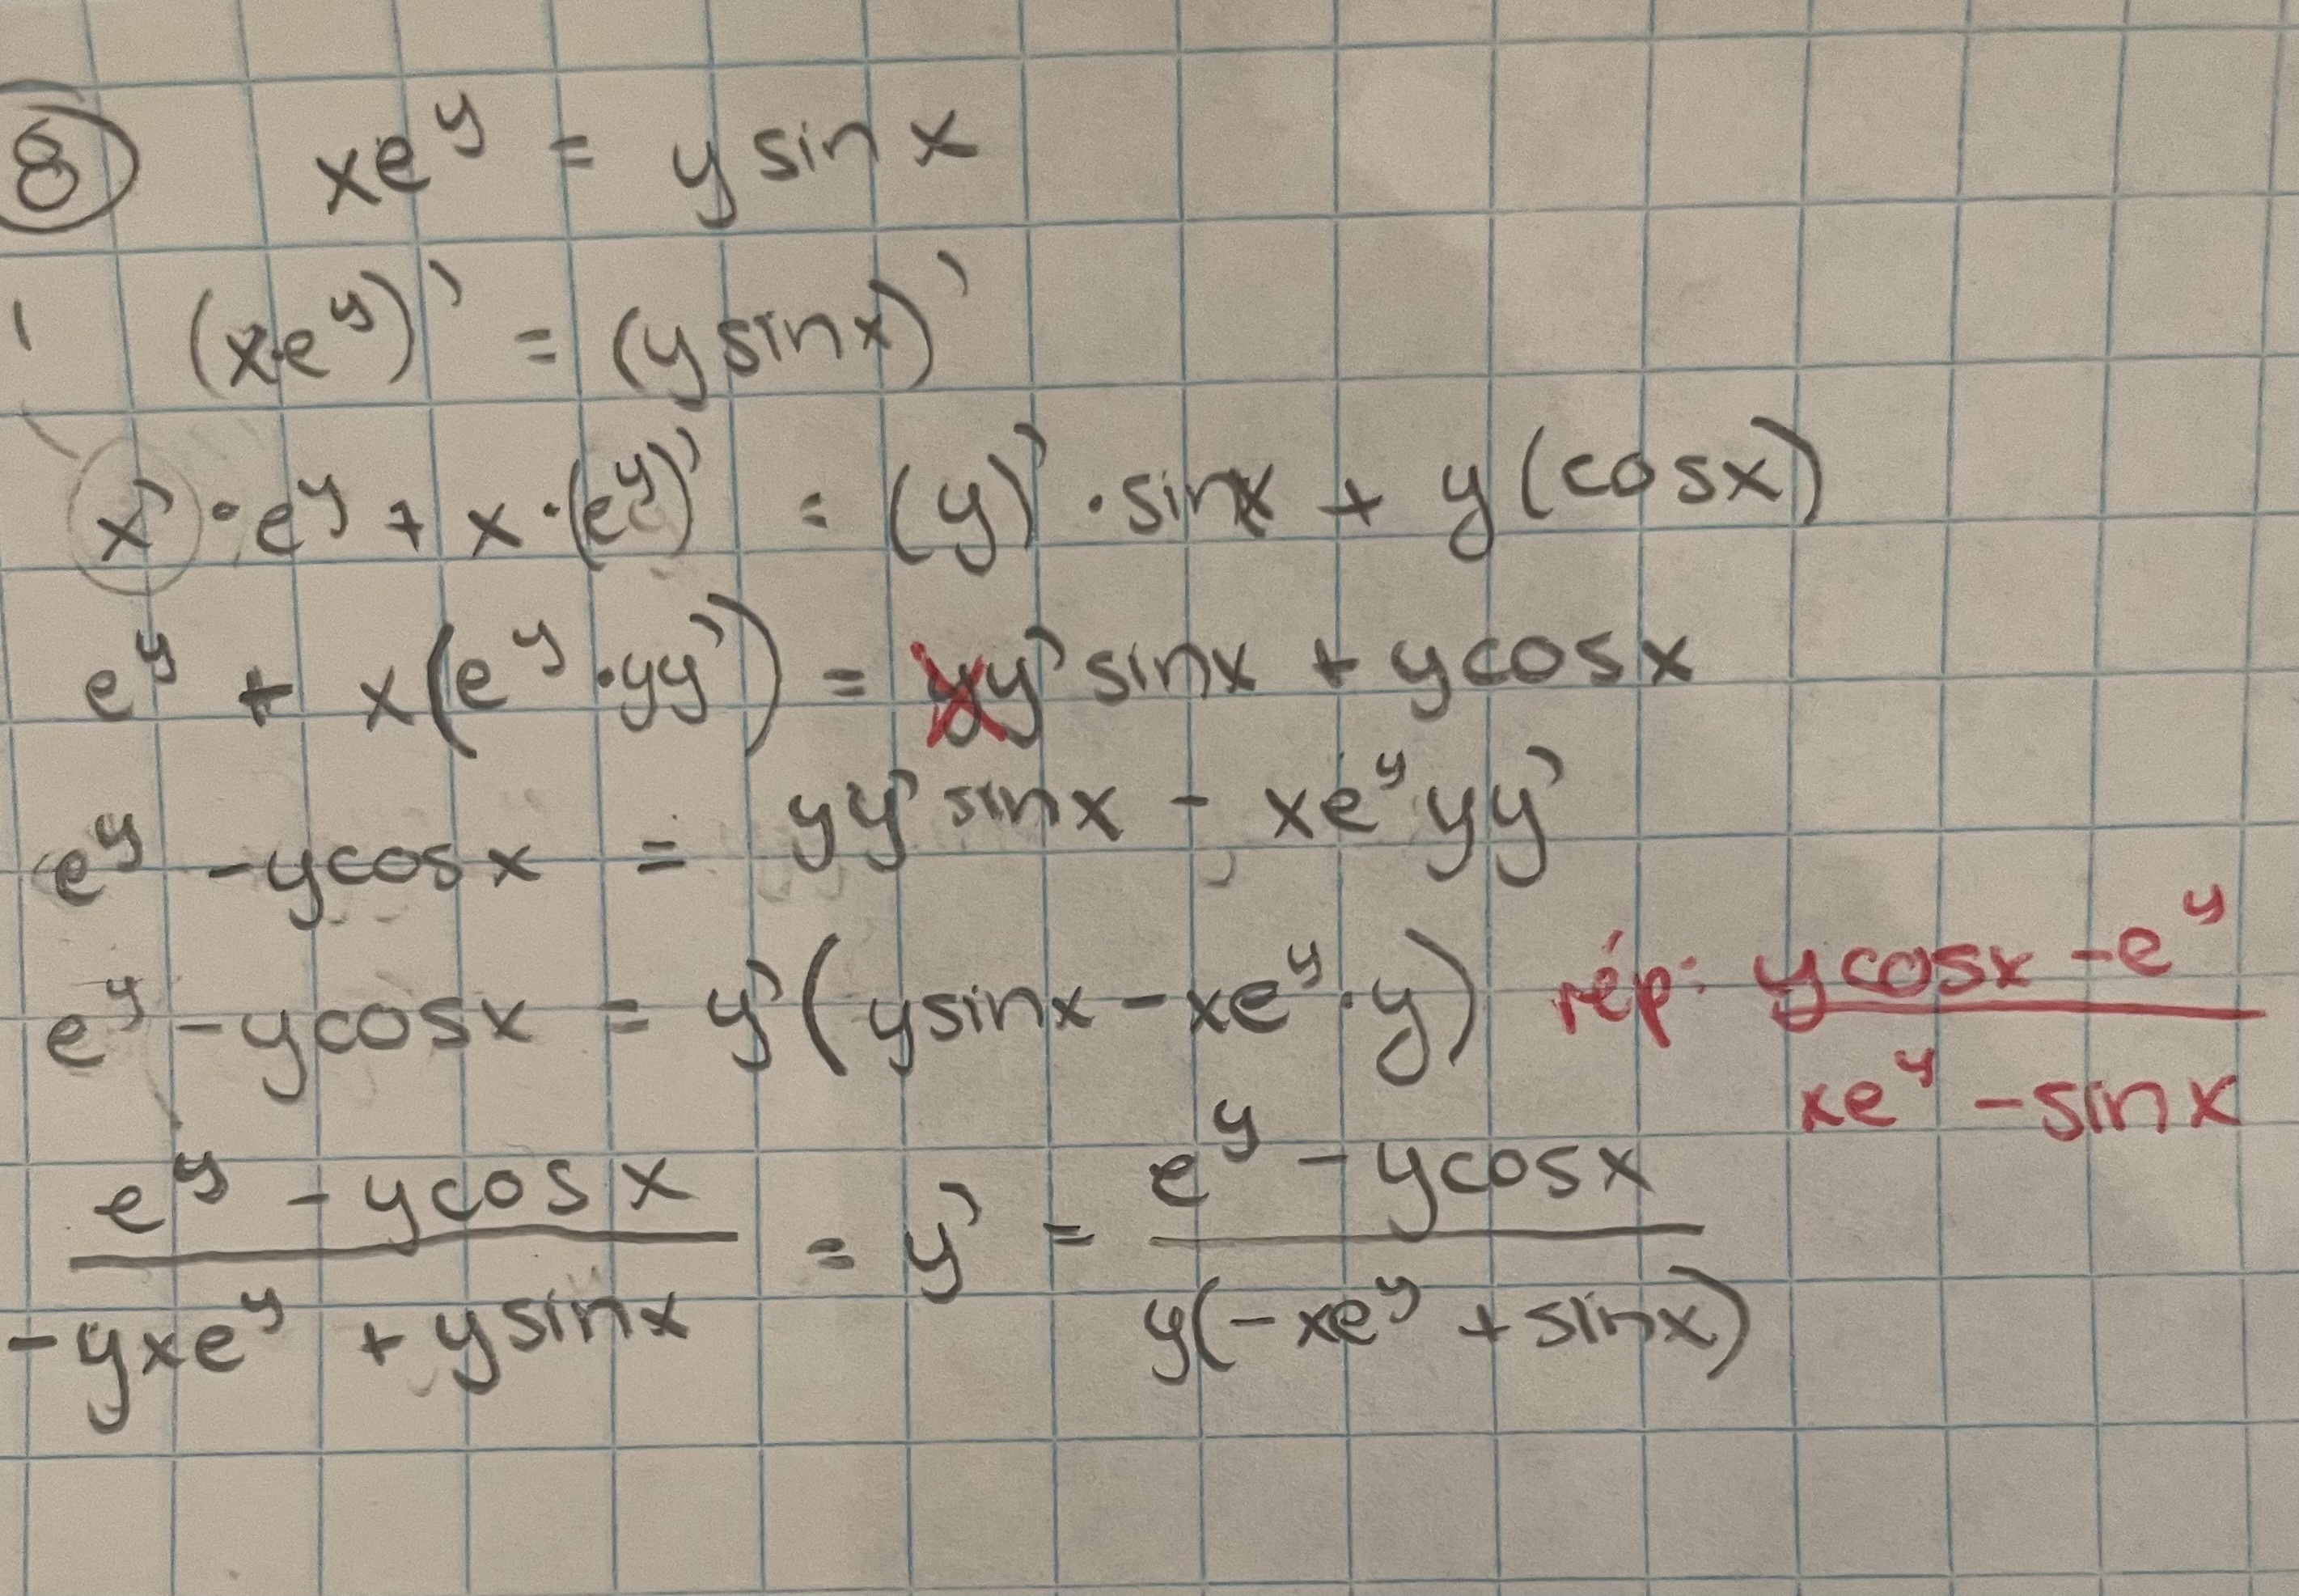 ⑧ xe^y = y sin x
(x·e^y)' = (y sin x)'
x'·e^y + x·(e^y)' = (y)'·sin x + y(cos x)
e^y + x(e^y·yy') = yy' sin x + y cos x
e^y - y cos x = yy' sin x - xe^y yy'
e^y - y cos x = y'(y sin x - xe^y·y)
rép: (y cos x - e^y)/(xe^y - sin x)
(e^y - y cos x)/(-yxe^y + y sin x) = y' = (e^y - y cos x)/(y(-xe^y + sin x))